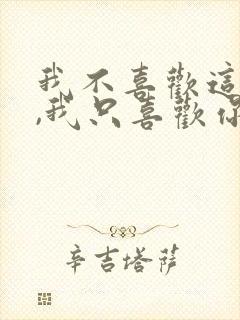 我不喜歡這
,我只喜歡你
辛吉塔薩